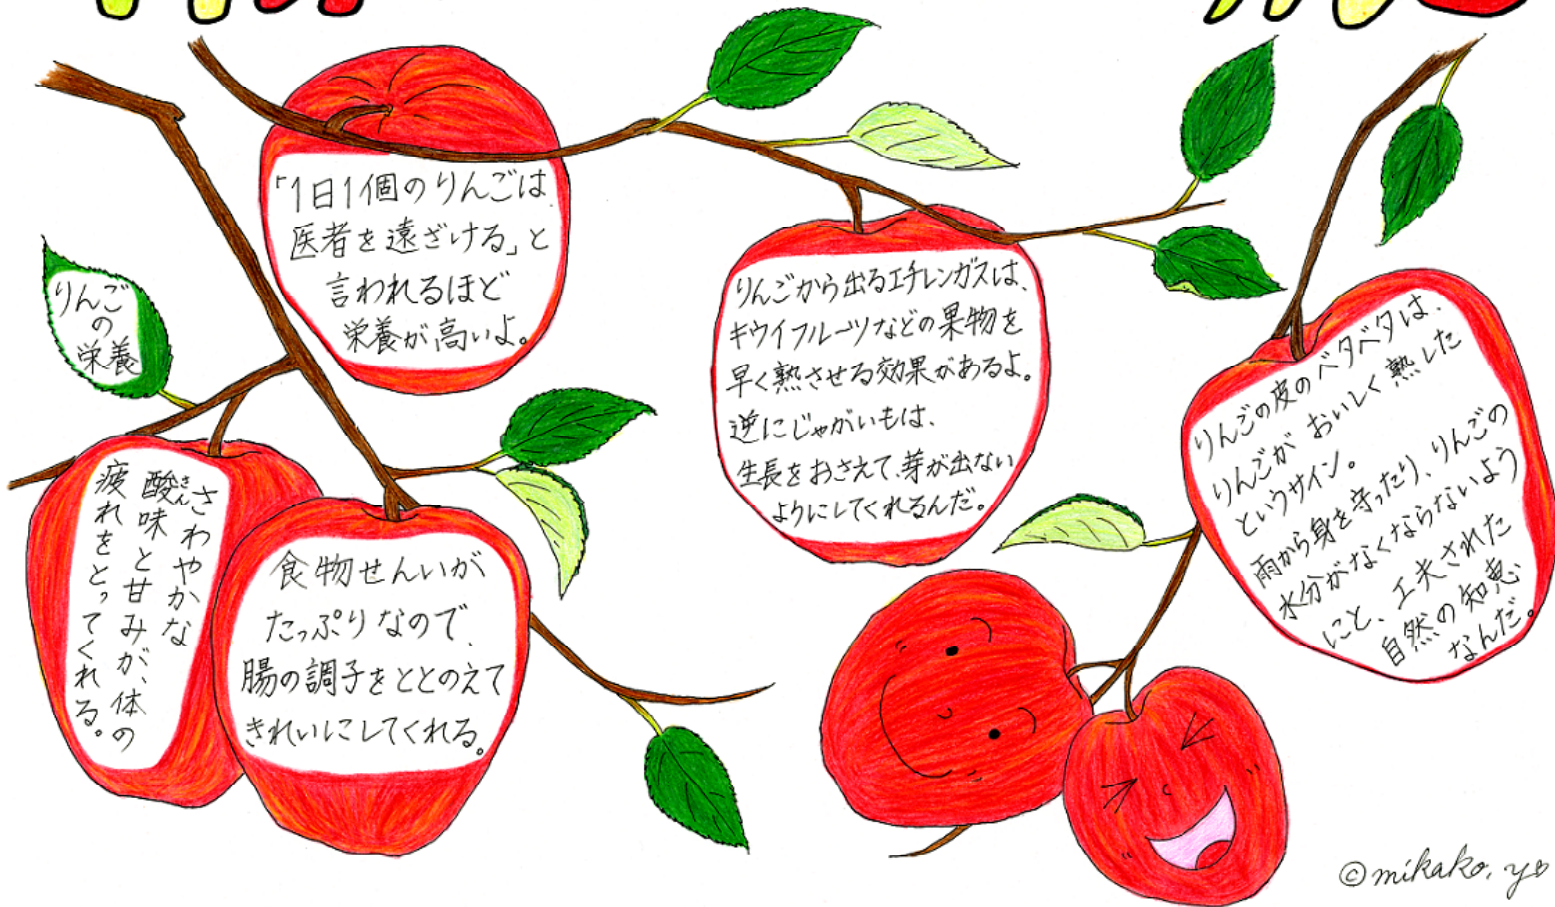 「1日1個のりんごは
医者を遠ざける」と
言われるほど
栄養が高いよ。
りんご
の
栄養
さわやかな
酸味と甘みが、体の
さん
疲れをとってくれる。
食物せんいが
たっぷりなので、
腸の調子をととのえて
きれいにしてくれる。
りんごから出るエチレンガスは、
キウイフルーツなどの果物を
早く熟させる効果があるよ。
逆にじゃがいもは、
生長をおさえて、芽が出ない
ようにしてくれるんだ。
りんごの皮のベタベタは、
りんごが おいしく熟した
というサイン。
雨から身を守ったり、りんごの
水分がなくならないよう
にと、工夫された
自然の知恵
なんだ。
©mikako.y